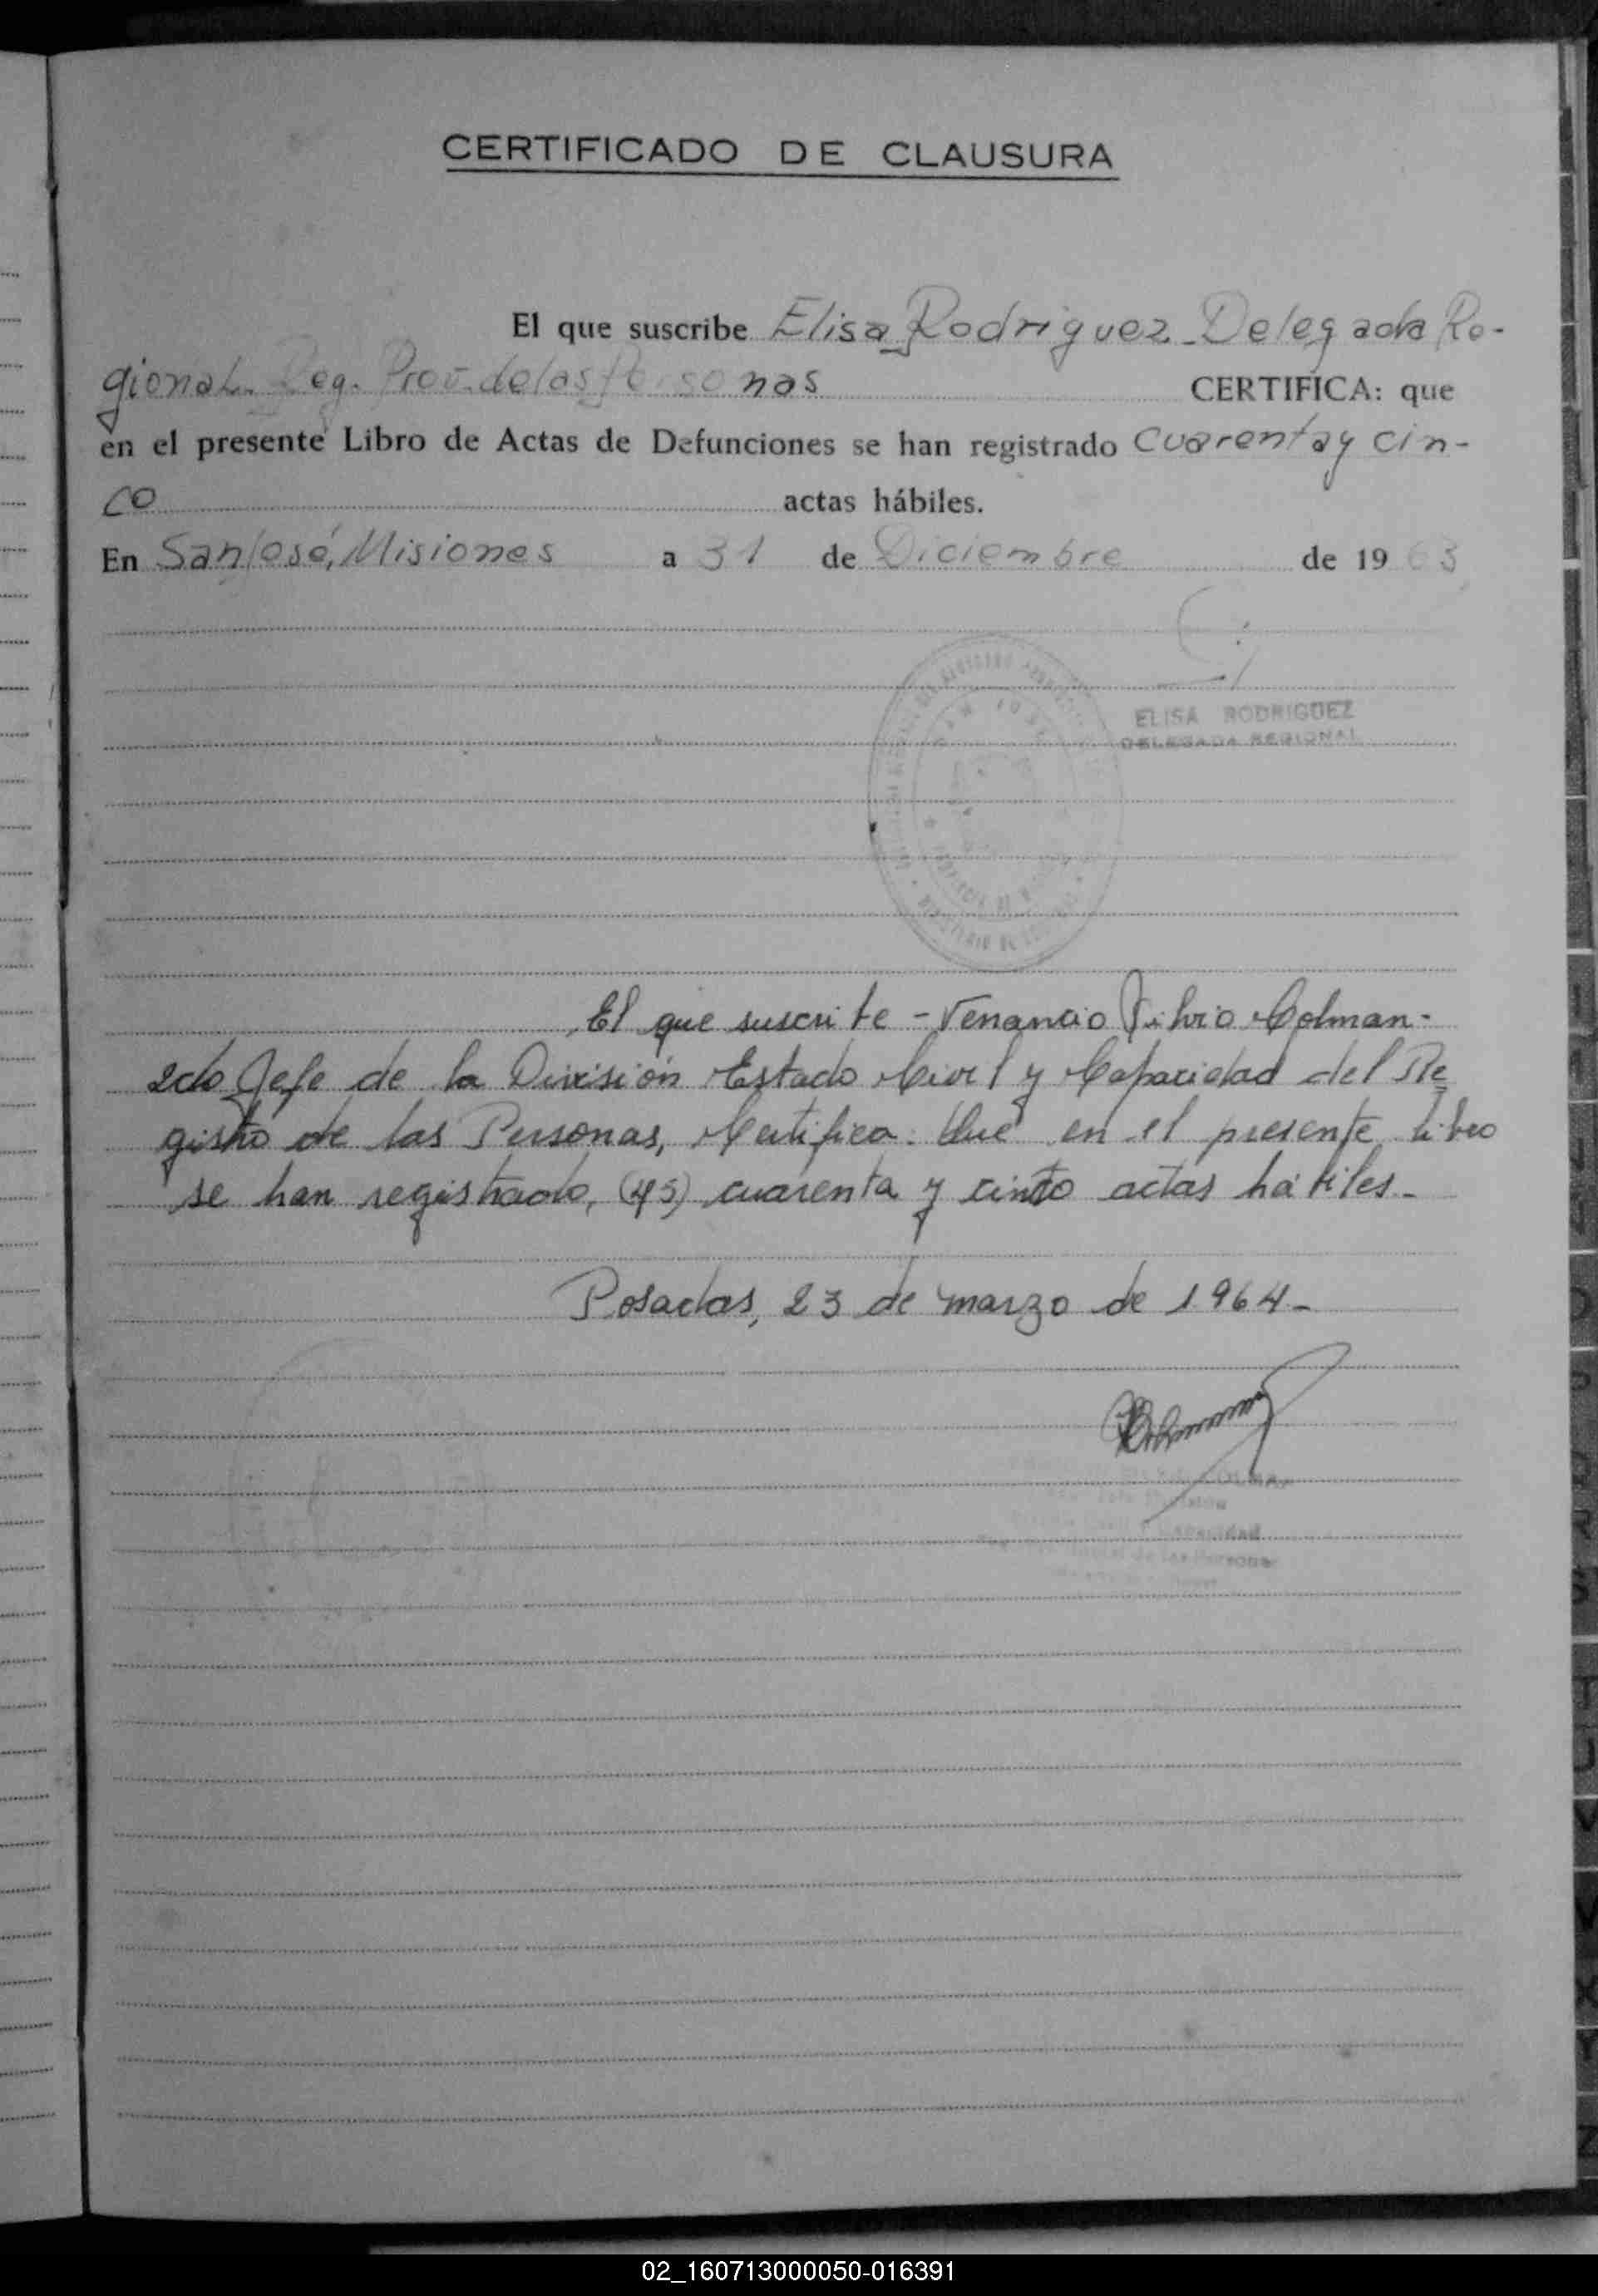 CERTIFICADO DE CLAUSURA
El que suscribe Elisa Rodriguez - Delegada Re-
gional. Reg. Prov. de las Personas CERTIFICA: que
en el presente Libro de Actas de Defunciones se han registrado Cuarenta y cin-
co actas hábiles.
En San José, Misiones a 31 de Diciembre de 19 63
ELISA RODRIGUEZ
DELEGADA REGIONAL
El que suscribe - Venancio Silvio Colman -
2do Jefe de la División Estado Civil y Capacidad del Re
gistro de las Personas, Certifica: Que en el presente libro
se han registrado, (45) cuarenta y cinco actas hábiles -
Posadas, 23 de marzo de 1964 -
02_160713000050-016391